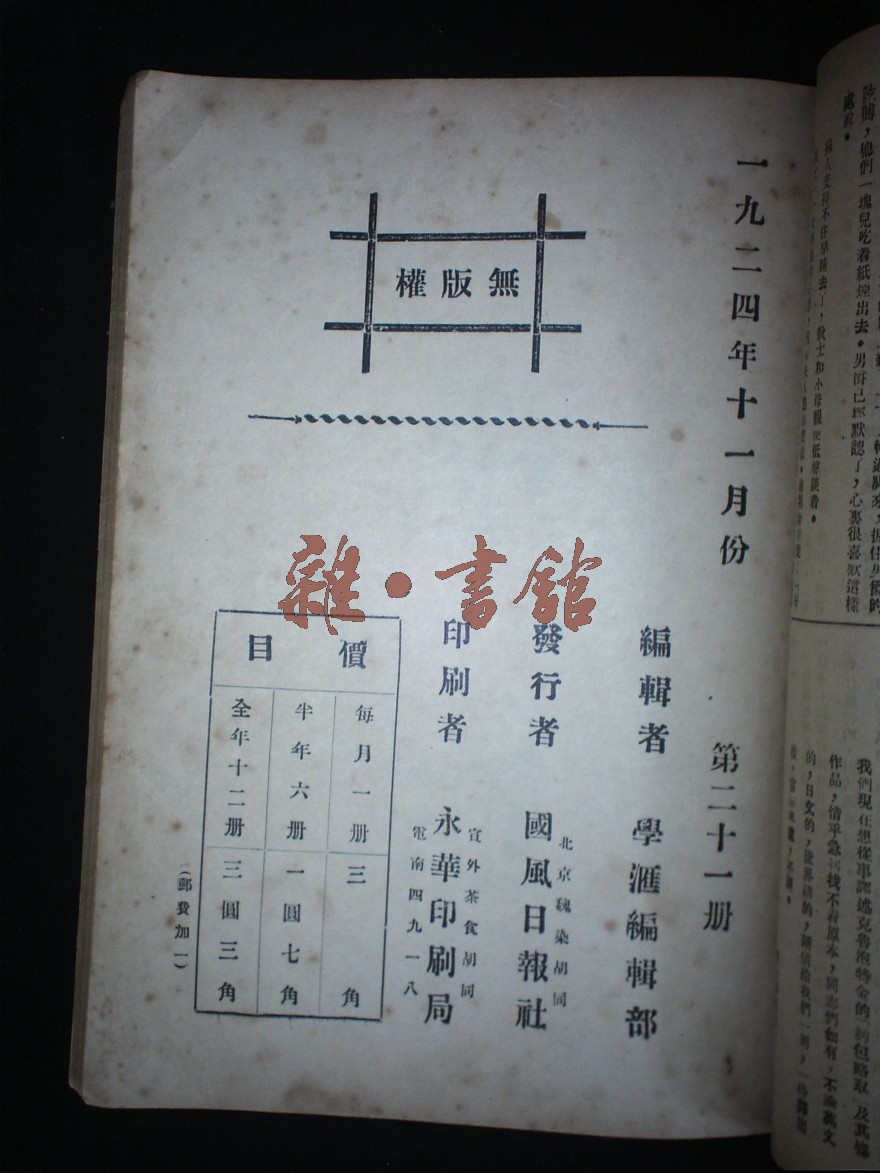 一九二四年十一月份
第二十一册
無版權
編輯者 學滙編輯部
發行者 國風日報社
北京魏染胡同
印刷者 永華印刷局
宣外茶食胡同
電南四九一八
價目
每月一册 三角
半年六册 一圓七角
全年十二册 三圓三角
(郵費加一)
雜·書舘
他們一塊兒吃着紙煙出去。男哥已經默認了,心裏很喜歡這樣
處置。
我們現在想從事譯述克魯泡特金的
作品,惜乎急切找不着原本,同志們如有,不論英文
的,日文的,世界語的,